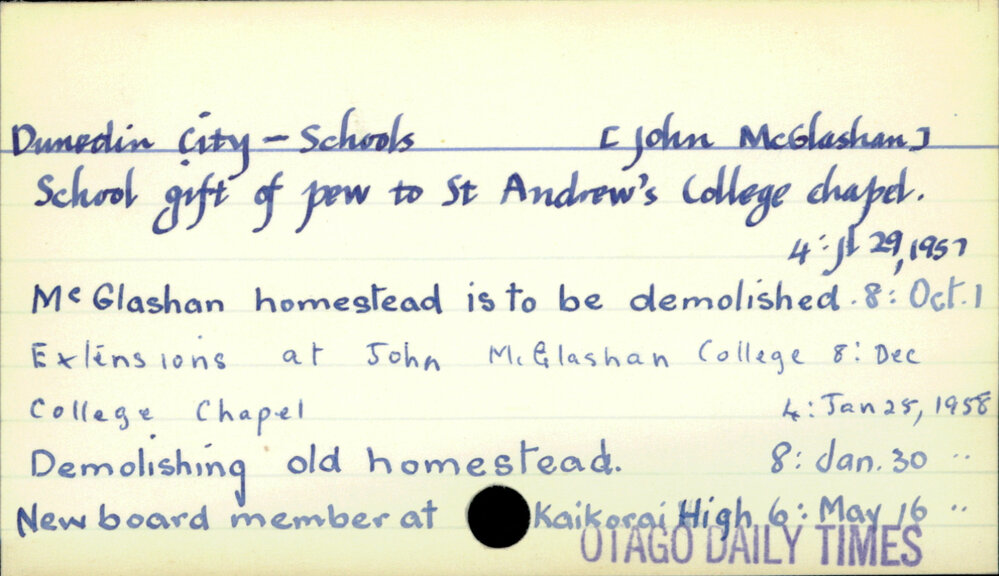 Dunedin City – Schools [John McGlashan]
School gift of pew to St Andrew's College chapel.
4: Jl 29, 1957
McGlashan homestead is to be demolished. 8: Oct. 1
Extensions at John McGlashan College 8: Dec
College Chapel 4: Jan 25, 1958
Demolishing old homestead. 8: Jan. 30 ..
New board member at Kaikorai High 6: May 16 ..
OTAGO DAILY TIMES